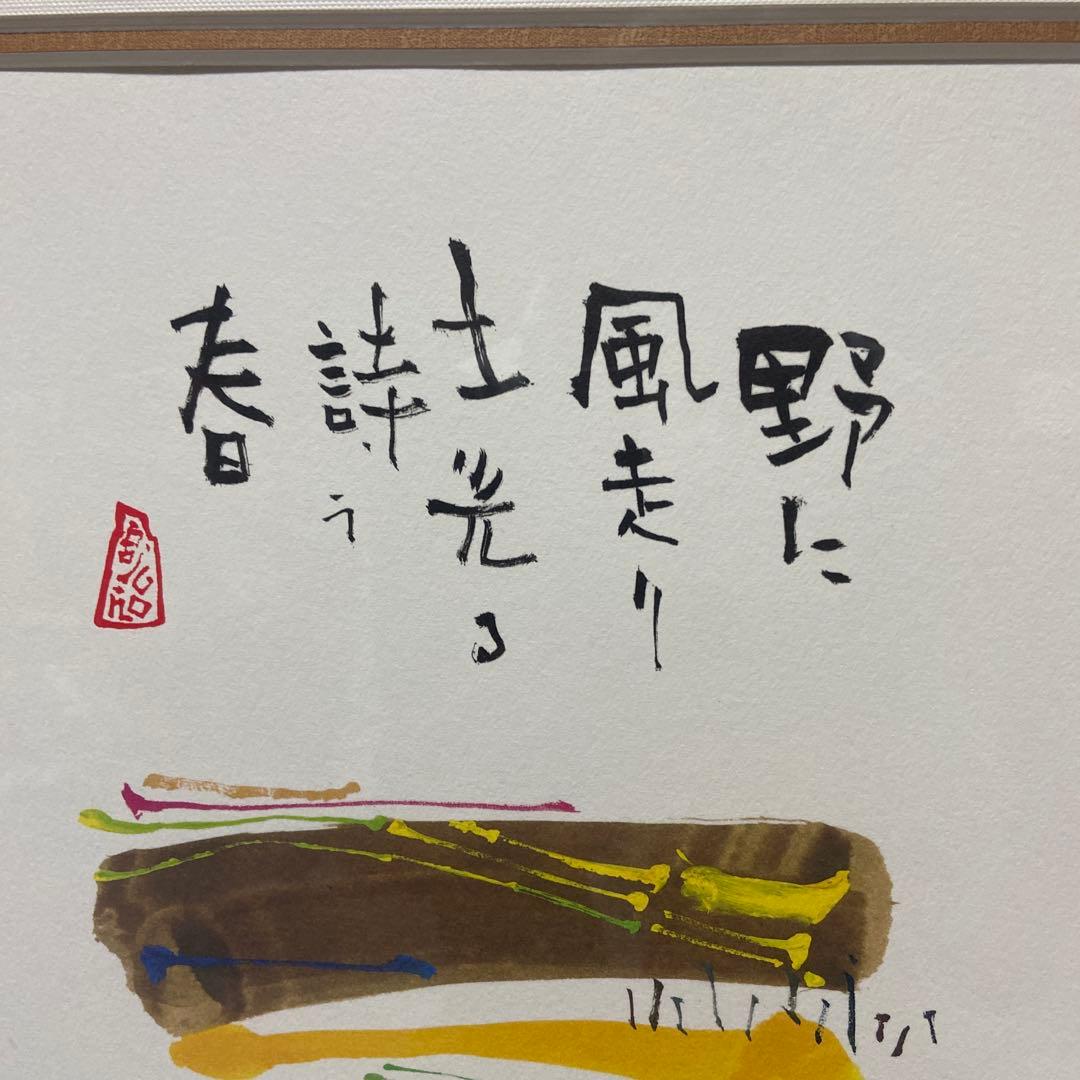 野に
風走り
土光る
詩う
春